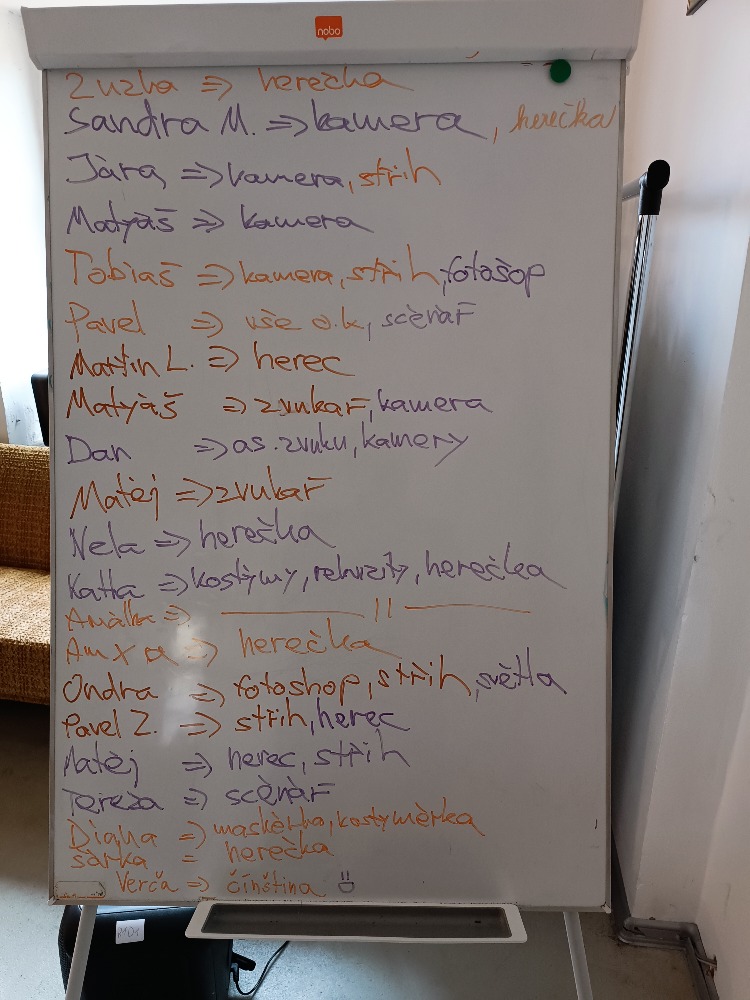 nobo
Zuzka => herečka
Sandra M. => kamera, herečka
Jára => kamera, střih
Matyáš => kamera
Tobiáš => kamera, střih, fotošop
Pavel => vše o.k, scénář
Martin L. => herec
Matyáš => zvukař, kamera
Dan => as. zvuku, kamery
Matěj => zvukař
Nela => herečka
Katka => kostýmy, rekvizity, herečka
Amálka => —— 11 ——
=> herečka
Ondra => fotoshop, střih, světla
Pavel Z. => střih, herec
Matěj => herec, střih
Tereza => scénář
Diana => maskérka, kostymérka
Šárka = herečka
Verča => čínština